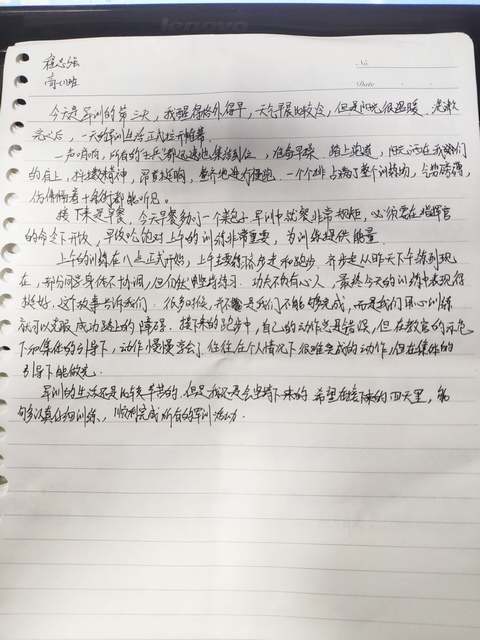 lenovo
No.
Date
程志强
高一(1)班
今天是军训的第三天，我醒得格外得早，天气虽比较冷，但是阳光很温暖。洗漱
完之后，一天的军训生活正式拉开帷幕。
一声哨响，所有的士兵都迅速地集结到位，准备早操。踏上跑道，阳光洒在我们
的肩上，抖擞精神，昂首挺胸，整齐地进行慢跑。一个个班占满了整个训练场，气势磅礴，
仿佛隔着十条街都能听见。
接下来是早餐，今天早餐多加了一个菜包子，军训中就餐非常规矩，必须要在指挥官
的命令下开饭，早饭吃饱对上午的训练非常重要，为训练提供能量。
上午的训练在八点正式开始，上午主要练齐步走和跑步。齐步走从昨天下午练到现
在，部分同学身体不协调，但仍然坚持练习。功夫不负有心人，最终今天的训练中表现得
挺好。这个故事告诉我们：很多时候，并不是我们不能够完成，而是我们用心训练
就可以克服成功路上的障碍。接下来的跑步中，自己的动作总是错误，但在教官的示范
下和集体的引导下，动作慢慢学会了。往往在个人情况下很难完成的动作，但在集体的
引导下能做完。
军训的生活还是比较辛苦的，但是我还是会坚持下来的。希望在接下来的四天里，能
够认真仔细训练，顺利完成所有的军训活动。